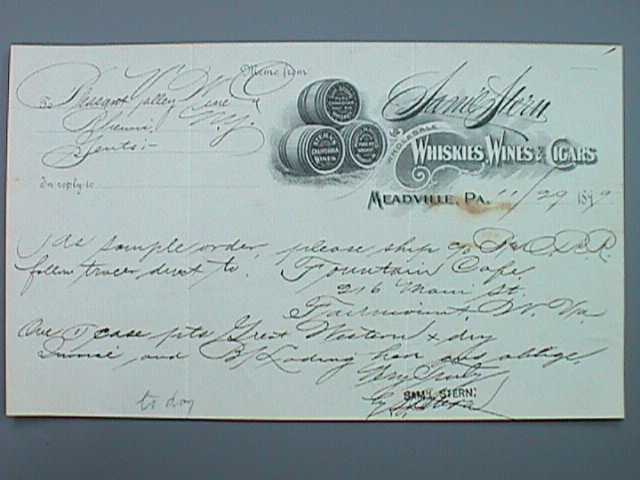 Memo from
Sam'l Stern
WHOLESALE
WHISKIES, WINES & CIGARS
MEADVILLE, PA. 11/29 189
To Pleasant Valley Wine Co
Rheims, N.Y.
Gents:-
In reply to
CALIFORNIA
WINES
As sample order, please ship
follow tracer direct to. Fountain Cafe,
216 Main St.
Fairmount, W. Va.
One (1) case pts Great Western x dry
and B/Lading and oblige,
Very Truly
SAM'L STERN.
to day